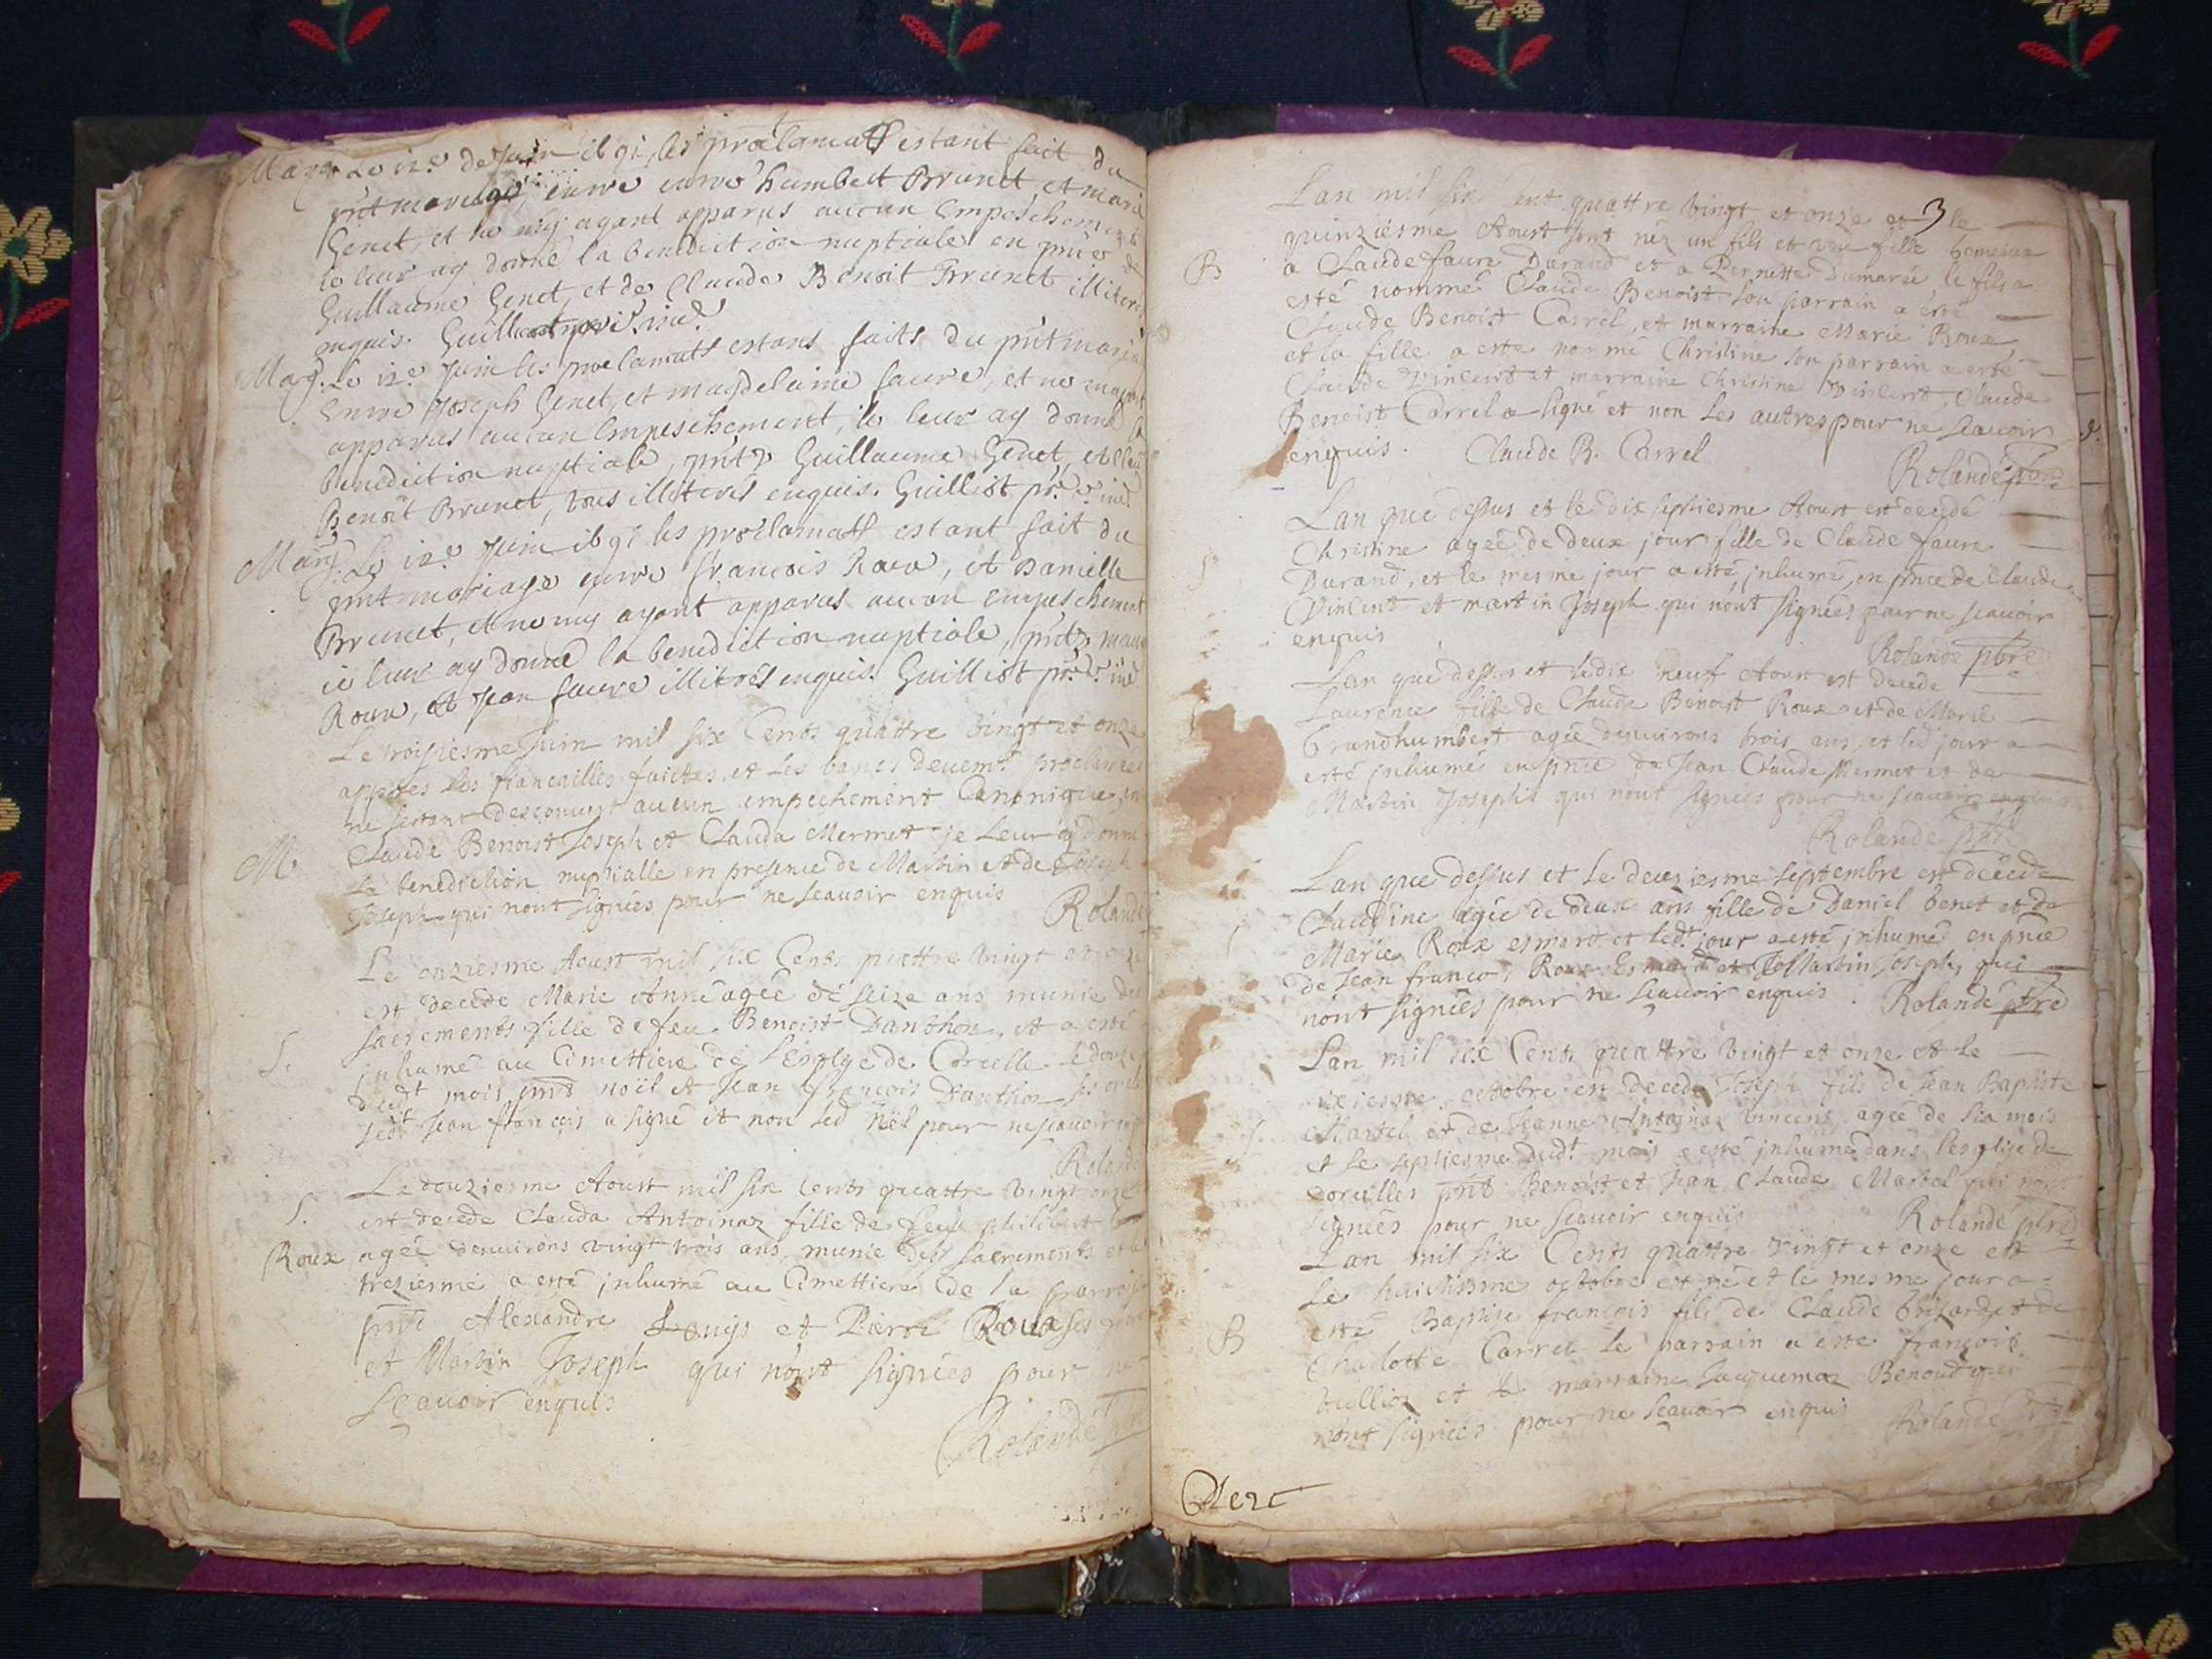 Mag. Le 12e de Juin 1691 les proclamatt estant fait du
pnt mariage, entre Humbert Brunet et Marie
Genet, et ne my ayant apparus aucun Empeschement
ie leur ay donné la benediction nuptiale en pnce de
Guillaume Genet, et de Claude Benoit Brunet illiteres
enquis.
Mag. Le 12e Juin les proclamatt estans faits du pnt mariage
Entre Joseph Genet, et Magdelaine faure, et ne mayant
apparus aucun Empeschement, ie leur ay donné la
benediction nuptiale, pnts Guillaume Genet, et Claude
Benoit Brunet, tous illiterés enquis. Guilliot
Mag. Le 12e Juin 1691 les proclamatt estant fait du
pnt mariage entre francois Roux, et Danielle
Brunet, et ne my ayant apparus aucun empeschement
ie leur ay donné la benediction nuptiale, pnts
Roux, et Jean faure illiterés enquis. Guilliot
Le troisiesme Juin mil six Cents quattre vingt et onze
appres les fiancailles faictes, et les bancs deuemt proclamees
ne sestant descouvert aucun empechement Canonique,
Claude Benoist Joseph et Clauda Mermet je leur ay donné
M la benediction nuptialle en presence de Martin et de Joseph
Joseph qui nont signées pour ne scauoir enquis
Rolande
Le onziesme Aoust mil six Cents quattre vingt et onze
est decede Marie Anne agée de seize ans munie des
sacrements fille de feu Benoist Danthon, et a esté
S. inhumé au Cimettiere de Leglyse de Corcelle le douze
dudt mois pnt noël et Jean François Danthon
ledt Jean françois a signé et non led Nöel pour ne scauoir
Rolande
Le douziesme Aoust mil six Cents quattre vingt onze
S. est decede Clauda Antoinaz fille de feu philibert
Roux agée denuirons vingt trois ans munie des sacrements et le
treziesme a esté inhumé au Cimettiere de la parroisse
pnt Alexandre Louys et Pierre Roux ses
et Martin Joseph qui n'ont signées pour ne
sçauoir enquis
Rolande
3
Lan mil six Cent quattre vingt et onze et le
quinziesme Aoust sont néz un fils et une fille
B a Claude faure Durand et a Pernette Dumarèe, le fils a
esté nommé Claude Benoist son parrain a esté
Claude Benoist Carrel, et marraine Marie Roux
et la fille a esté nommé Christine son parrain a esté
Claude Vincent et marraine Christine Vincent, Claude
Benoist Carrel a signé et non les autres pour ne scauoir
enquis. Claude B. Carrel
Rolande ptre
Lan que dessus et le dix septiesme Aoust est decedé
Christine agée de deux jour fille de Claude faure
S Durand, et le mesme jour a esté inhumé, en pnce de Claude
Vincent et martin Joseph qui nont signées pour ne scauoir
enquis
Rolande ptre
Lan que dessus et le dix neuf Aoust est decede
Laurence fille de Claude Benoist Roux et de Marie
Grandhumbert agée denuirons trois ans, et led jour a
esté inhumé en pnce de Jean Claude Mermet et de
Martin Joseph qui nont signées pour ne scauoir enquis
Rolande ptre
Lan que dessus et le deuziesme septembre est decedé
Claudine agée de deux ans fille de Daniel Genet et de
Marie Roux esmard et ledt jour a esté inhumé en pnce
de Jean francois Roux Esmard et Martin Joseph, qui
nont signées pour ne scauoir enquis. Rolande ptre
Lan mil six Cents quattre vingt et onze et le
octobre est decede Joseph fils de Jean Baptiste
S. Martel et de Jeanne Antoinaz vincent agée de six mois
et le septiesme dudt mois a esté inhumé dans leglise de
corcelles pnt Benoist et Jean Claude Martel qui nont
signées pour ne scauoir enquis Rolande ptre
Lan mil six Cents quattre vingt et onze et
le huictiesme octobre est né et le mesme jour a
B esté Baptise francois fils de Claude et de
Charlotte Carrel le parrain a esté françois
Vullioz et la marraine Jaquemaz Benoud qui
nont signées pour ne scauoir enquis Rolande ptre